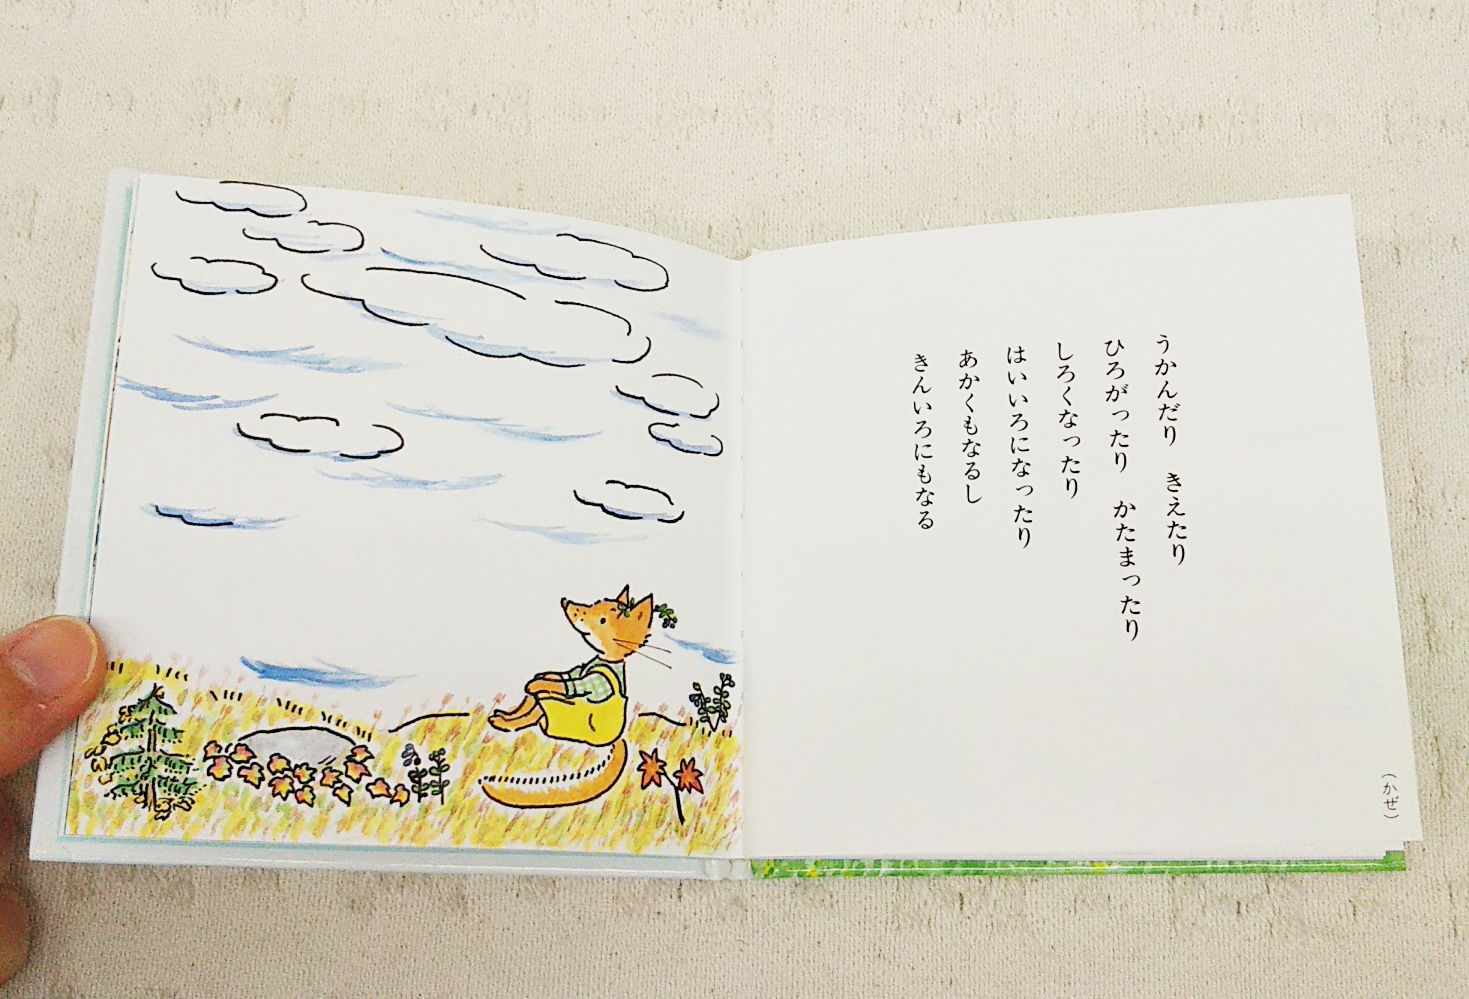 うかんだり　きえたり
ひろがったり　かたまったり
しろくなったり
はいいろになったり
あかくもなるし
きんいろにもなる
（かぜ）